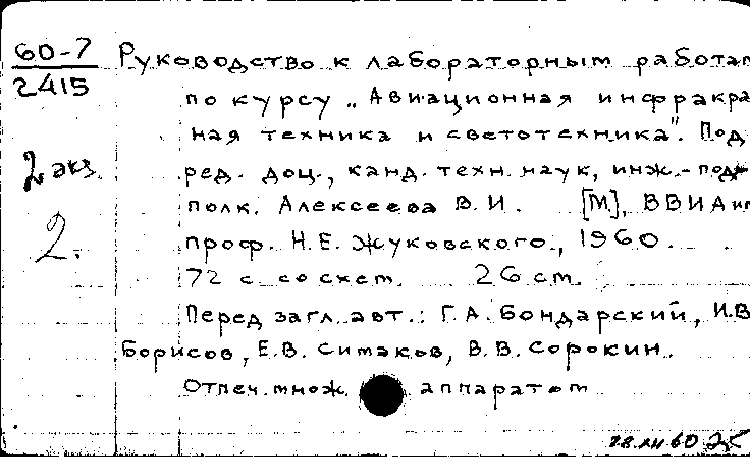 60-7
2415
Руководство к лабораторным работам
по курсу „Авиационная инфракра
ная техника и светотехника". Под
ред. доц., канд. техн. наук, инж.-под-
полк. Алексеева В.И. [М], ВВИА им
проф. Н.Е. Жуковского, 1960.
72 с. со схем. 26 см.
Перед загл. авт.: Г.А. Бондарский, И.В
Борисов, Е.В. Симаков, В.В. Сорокин.
Отпеч. множ. аппаратом
2 экз.
2.
28.XII.60